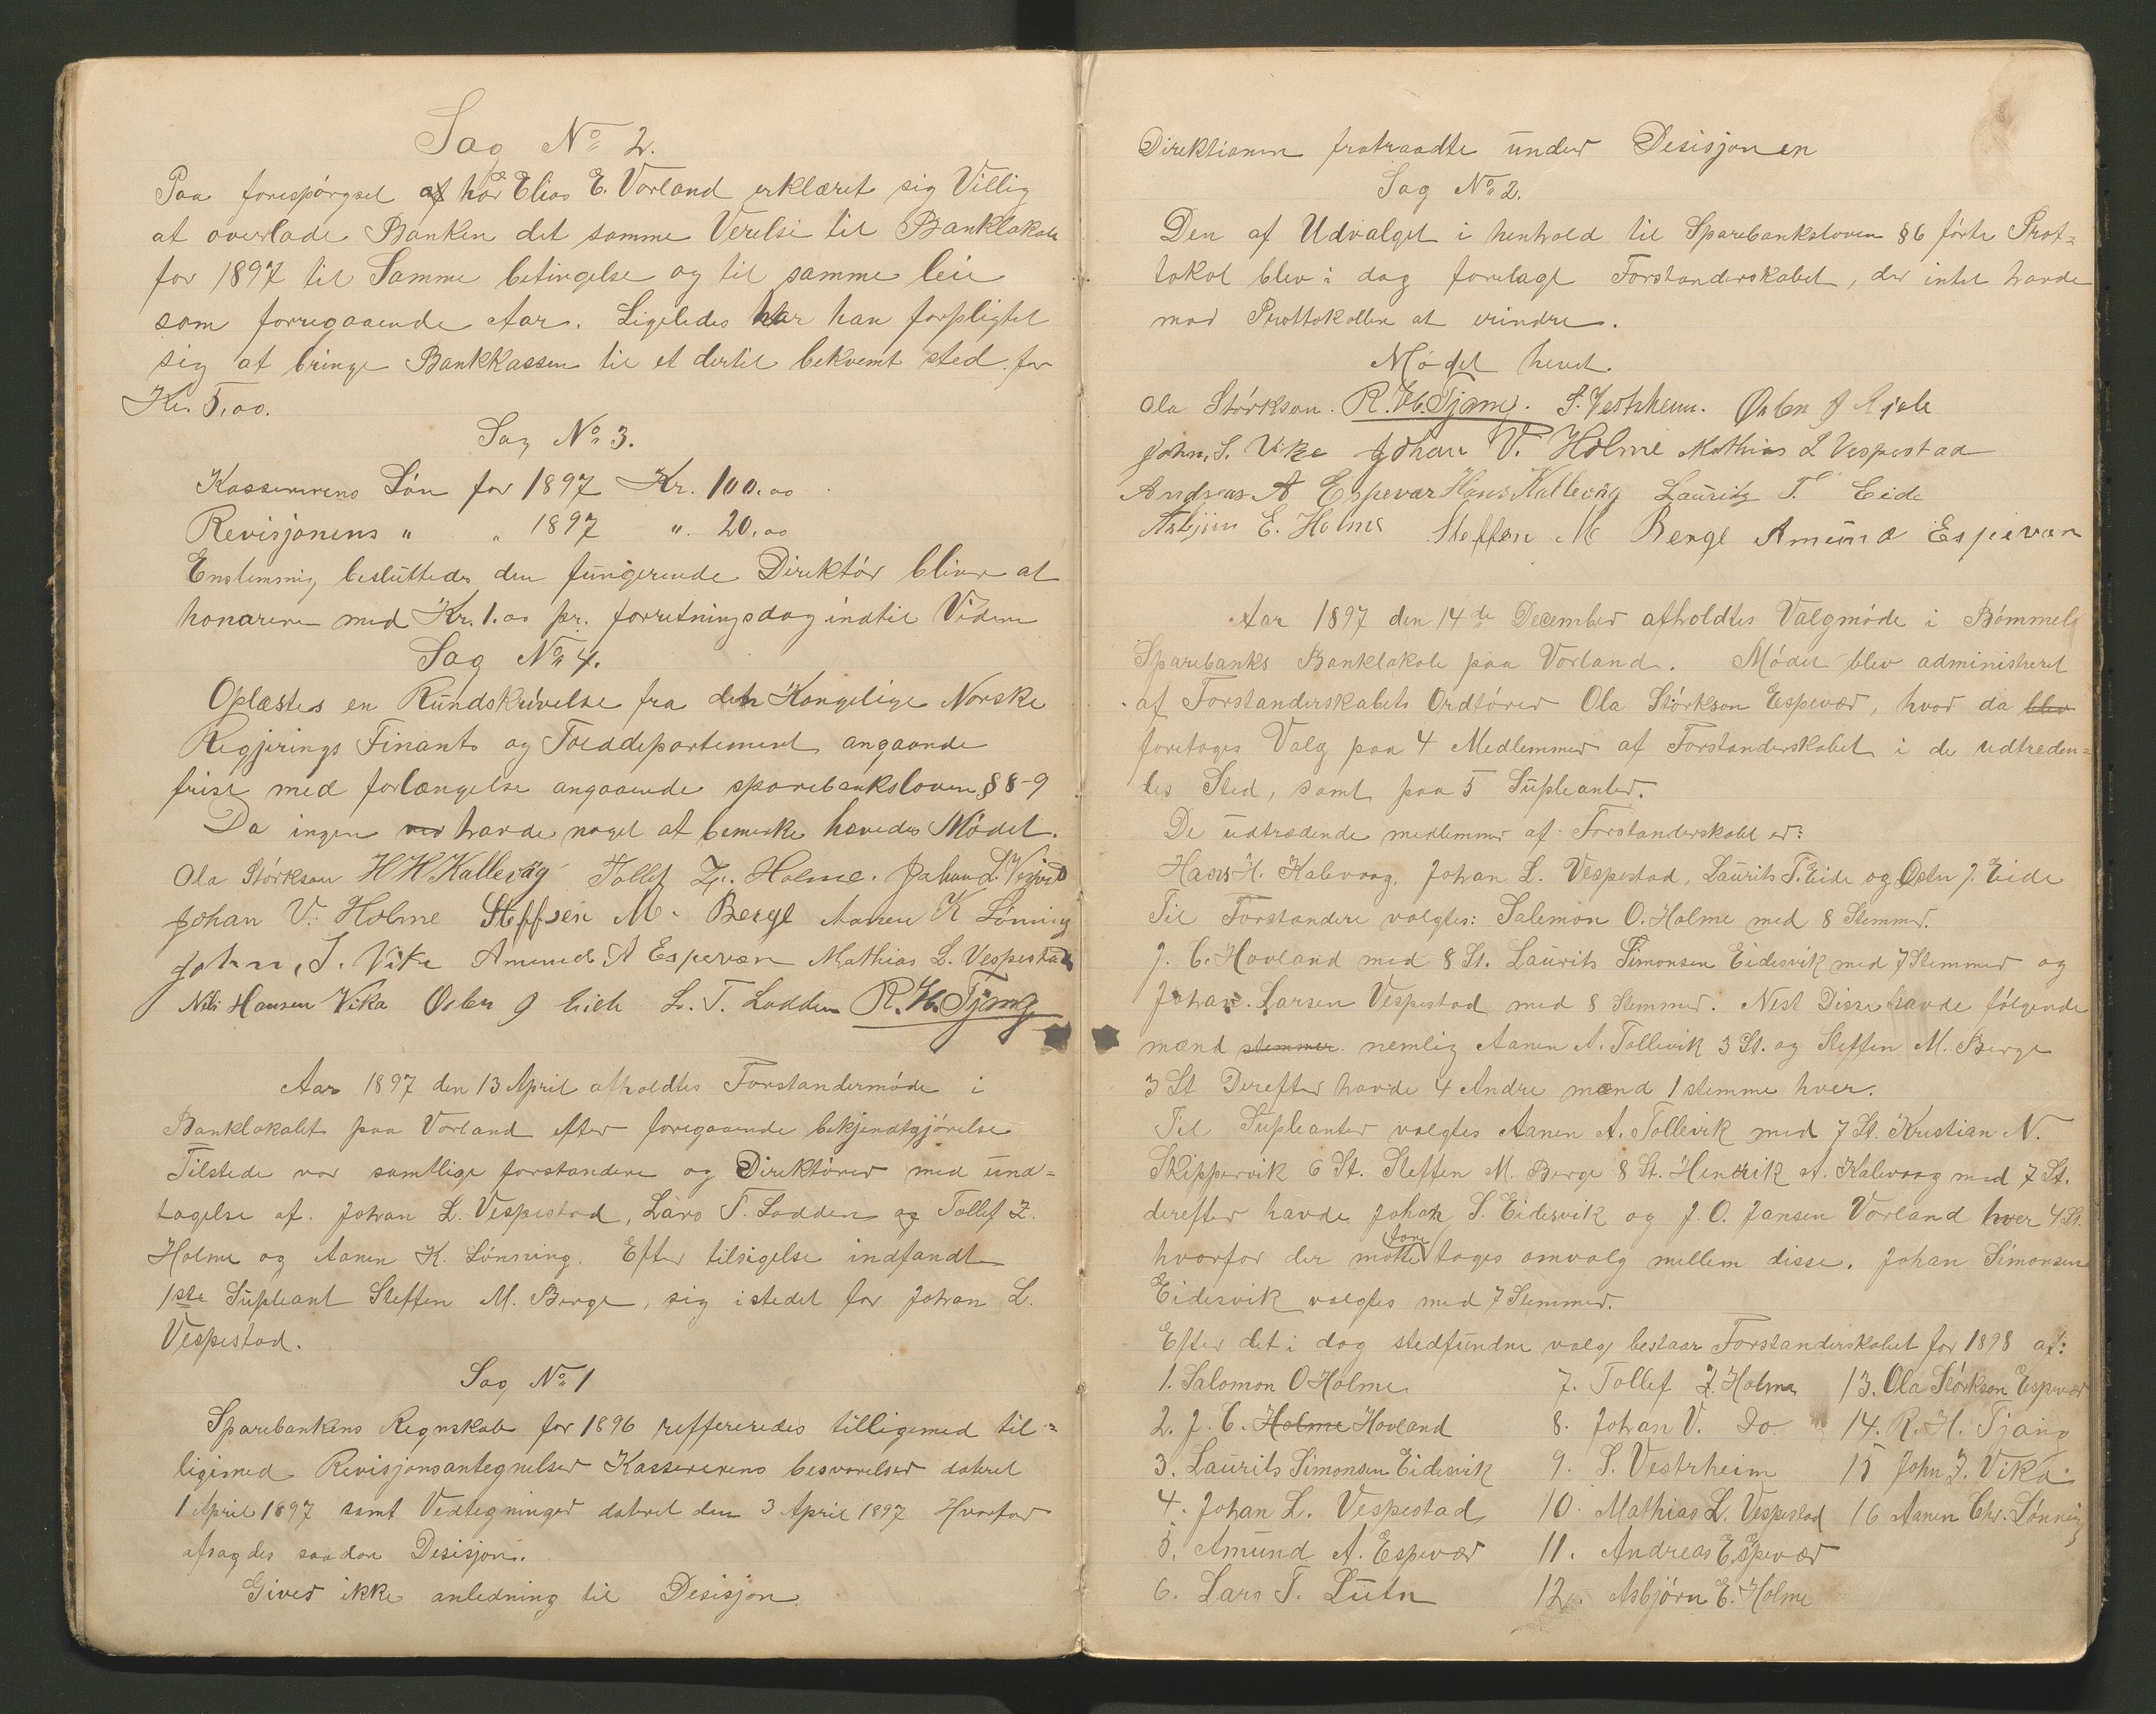 Sag No 2.
Paa forespörgsel af har Elias E. Vorland erklæret sig Villig
at overlade Banken det samme Verelse til Banklokale
for 1897 til Samme betingelse og til samme leie
som forregaaende Aar. Ligeledes har han forpligtet
sig at bringe Bankkassen til et dertil bekvemt sted for
Kr. 5,00.
Sag No 3.
Kassererens Lön for 1897 Kr. 100.00
Revisjonens " " 1897 " 20.00
Enstemmig besluttedes den fungerende Direktör bliver at
honorere med Kr. 1.00 pr. forretningsdag indtil Videre
Sag No 4.
Oplæstes en Rundskrivelse fra den Kongelige Norske
Regjerings Finants og Tolddepartement angaande
frist med forlængelse angaaende sparebanksloven § 8-9
Da ingen ved havde noget at bemerke hævedes Mödet.
Ola Störkson H H Kallevåg Tollef Z. Holme. Johan L. Vespestad
Johan V. Holme Steffsen M. Berge Aanen K Lönning
John, J. Vika Amund A Espevær Mathias L. Vespestad
Nils Hansen Vika Osten J Eide L. T. Lodden R. H. Tjong
Aar 1897 den 13 April afholdtes Forstandermöde i
Banklokalet paa Vorland efter foregaaende bekjendtgjörelse
Tilstede var samtlige forstandere og Direktörer med und=
tagelse af. Johan L. Vespestad, Lars T. Lodden og Tollef Z.
Holme og Aanen K. Lönning. Efter tilsigelse indfandt
1ste Supleant Steffen M. Berge, sig istedet for Johan L.
Vespestad.
Sag No 1
Sparebankens Regnskab for 1896 reffereredes tilligemed til=
ligemed Revisjonsantegnelser Kassererens besvarelser dateret
1 April 1897 samt Vedtegninger dateret den 3 April 1897 Hvorfor
afsagdes saadan Desisjon.
Giver ikke anledning til Desisjon
Direktionen fratraadte under Desisjonen
Sag No 2.
Den af Udvalget i henhold til Sparebanksloven § 6 förte Prot=
tokol blev i dag forelagt Forstanderskabet, der intet havde
mod Prottokollen at erindre.
Mödet hevet.
Ola Störkson. R. H. Tjong. S. Vestrheim. Osten J Eide
John, J. Vika Johan V. Holme Mathias L Vespestad
Andreas A Espevær Hans Kallevåg Lauritz T. Eide
Asbjörn E. Holme Steffen M Berge Amund Espevær
Aar 1897 den 14de December afholdtes Valgmöde i Bömmel
Sparebanks Banklokale paa Vorland. Mödet blev administreret
af Forstanderskabets Ordförer Ola Störkson Espevær, hvor da blev
foretoges Valg paa 4 Medlemmer af Forstanderskabet i de udtreden=
des Sted, samt paa 5 Supleanter.
De udtrædende medlemmer af Forstanderskabet er:
Hans H. Kalevaag, Johan L. Vespestad, Laurits T. Eide og Osten J. Eide
Til Forstandere valgtes: Salemon O. Holme med 8 Stemmer.
J. C. Hovland med 8 St. Laurits Simonsen Eidesvik med 7 Stemmer og
Johan. Larsen Vespestad med 8 Stemmer. Nest Disse havde fölgende
mænd stemmer nemlig Aanen A. Tollevik 3 St. og Steffen M. Berge
3 St Derefter havde 4 Andre mænd 1 stemme hver.
Til Supleanter valgtes Aanen A. Tollevik med 7 St. Kristian N.
Skippervik 6 St. Steffen M. Berge 8 St. Henrik A. Kalevaag med 7 St.
derefter havde Johan S. Eidesvik og J. O. Jansen Vorland hver 4 St.
hvorfor der motte foretages omvalg mellem disse. Johan Simonsen
Eidesvik valgtes med 7 Stemmer.
Efter det i dag stedfundne valg bestaar Forstanderskabet for 1898 af:
1. Salomon O Holme 7. Tollef Z. Holme 13. Ola Störkson Espevær
2. J. C. Holme Hovland 8. Johan V. Do 14. R. H. Tjong
3. Laurits Simonsen Eidesvik 9. S. Vestrheim 15 John J. Vika
4. Johan L. Vespestad 10. Mathias L. Vespestad 16 Aanen Chr. Lönning
5. Amund A. Espevær 11. Andreas Espevær
6. Lars T. 12. Asbjörn E. Holme